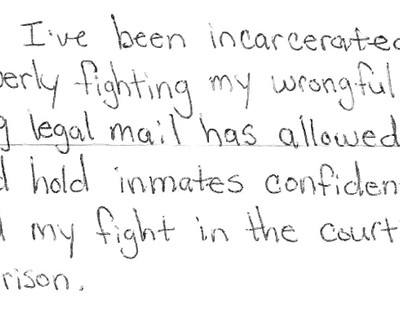 I've been incarcerated
erly fighting my wrongful
g legal mail has allowed
d hold inmates confiden
my fight in the court
rison.